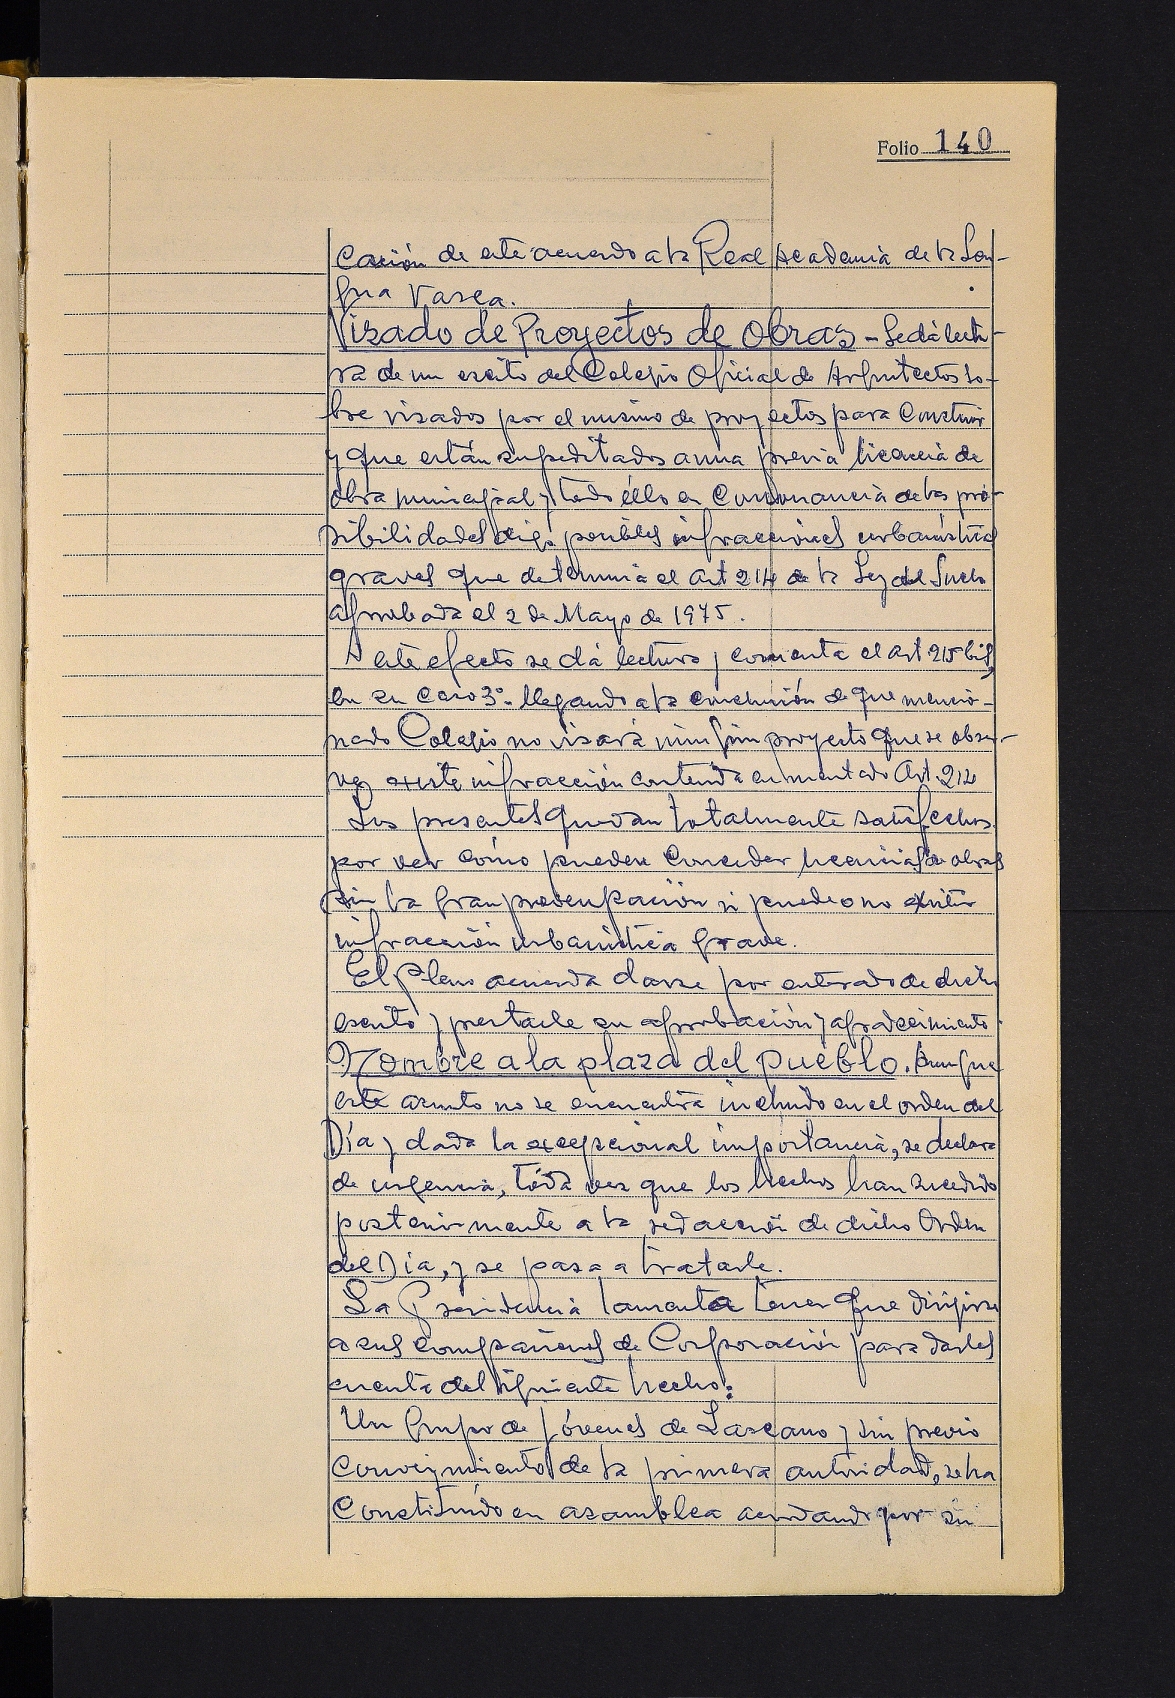 Folio 140
cación de este acuerdo a la Real Academia de la Len-
gua Vasca.
Visado de Proyectos de Obras - Se dá lectu-
ra de un escrito del Colegio Oficial de Arquitectos so-
bre visados por el mismo de proyectos para construir
y que están supeditados a una previa licencia de
obra municipal y todo éllo en consonancia de las po-
sibilidades digo posibles infracciones urbanísticas
graves que determina el art 214 de la Ley del Suelo
aprobada el 2 de Mayo de 1975.
A este efecto se dá lectura y comenta el art 215 bis,
en su caso 3º- llegando a la conclusión de que mencio-
nado Colegio no visará ningún proyecto que se obser-
ve existe infracción contenida en mentado Art. 214
Los presentes quedan totalmente satisfechos
por ver cómo pueden conceder licencias de obras
sin la gran preocupación si puede o no existir
infracción urbanística grave.
El Pleno acuerda darse por enterado de dicho
escrito y prestarle su aprobación y agradecimiento
Nombre a la plaza del pueblo. Aunque
este asunto no se encuentra incluido en el orden del
Día y dada la excepcional importancia, se declara
de urgencia, toda vez que los hechos han sucedido
posteriormente a la redacción de dicho Orden
del Día, y se pasa a tratarle.
La Presidencia lamenta tener que dirigirse
a sus compañeros de Corporación para darles
cuenta del siguiente hecho:
Un Grupo de jóvenes de Lazcano y sin previo
conocimiento de la primera autoridad, se ha
constituído en asamblea acordando por su